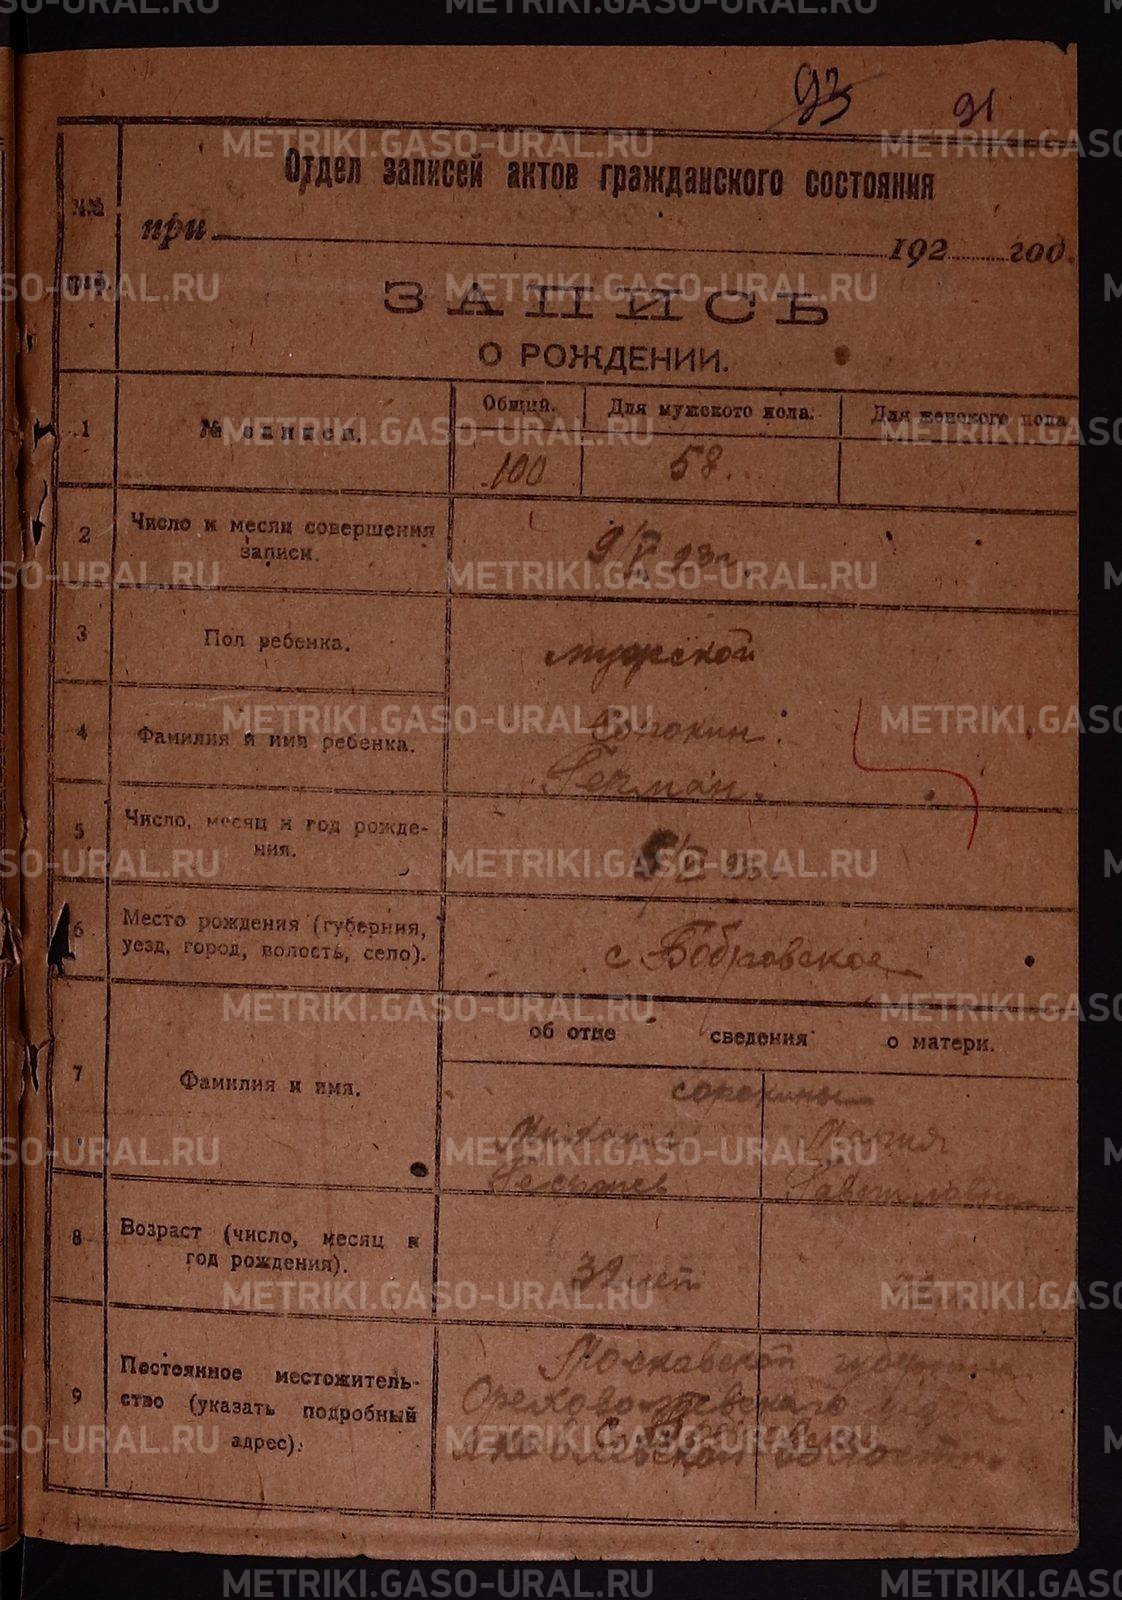 93 91
Отдел записей актов гражданского состояния
при 192 год.
№№ граф.
ЗАПИСЬ
О РОЖДЕНИИ.
1 № записи. Общий. Для мужского пола. Для женского пола
100 58.
2 Число и месяц совершения записи. 9/V 23 г.
3 Пол ребенка. мужской
4 Фамилия и имя ребенка. Сорокин
Герман.
5 Число, месяц и год рожде-
ния.
6 Место рождения (губерния,
уезд, город, волость, село). с Бобровское
об отце сведения о матери.
7 Фамилия и имя. Сорокины
Михаил Мария
8 Возраст (число, месяц и
год рождения). 32 лет
9 Постоянное местожитель-
ство (указать подробный
адрес). Московской губернии
Орехово-Зуевского уезда
волости
METRIKI.GASO-URAL.RU